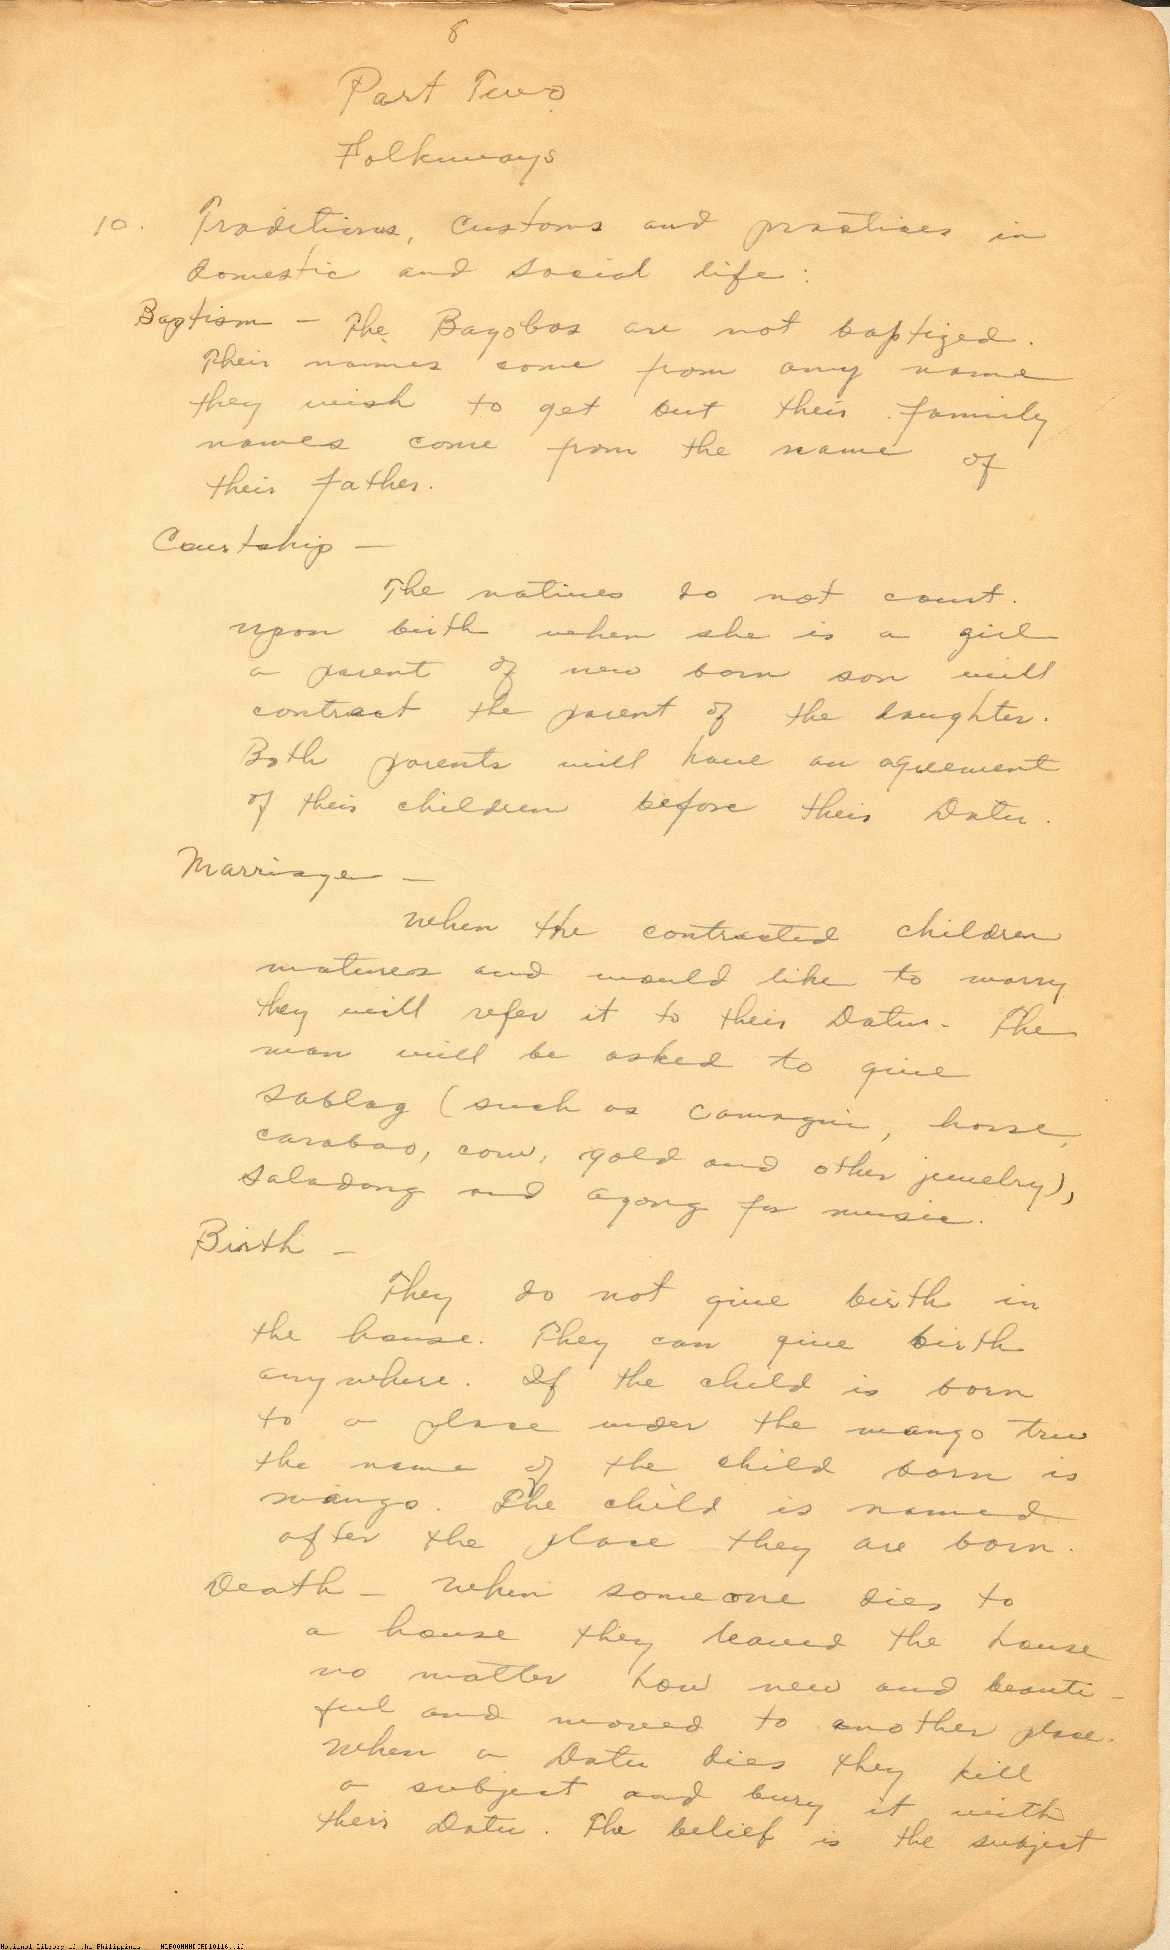 8
Part Two
Folkways
10. Traditions, customs and practices in
domestic and social life:
Baptism - The Bagobos are not baptized.
Their names come from any name
they wish to get but their family
names come from the name of
their father.
Courtship -
The natives do not court.
Upon birth when she is a girl
a parent of new born son will
contract the parent of the daughter.
Both parents will have an agreement
of their children before their Datu.
Marriage -
When the contracted children
matures and would like to marry
they will refer it to their Datu. The
man will be asked to give
sablag (such as camagui, horse,
carabao, cow, gold and other jewelry),
saladong and agong for music.
Birth -
They do not give birth in
the house. They can give birth
anywhere. If the child is born
to a place under the mango tree
the name of the child born is
mango. The child is named
after the place they are born.
Death - When someone dies to
a house they leaved the house
no matter how new and beauti-
ful and moved to another place.
When a Datu dies they kill
a subject and bury it with
their Datu. The belief is the subject
National Library of the Philippines